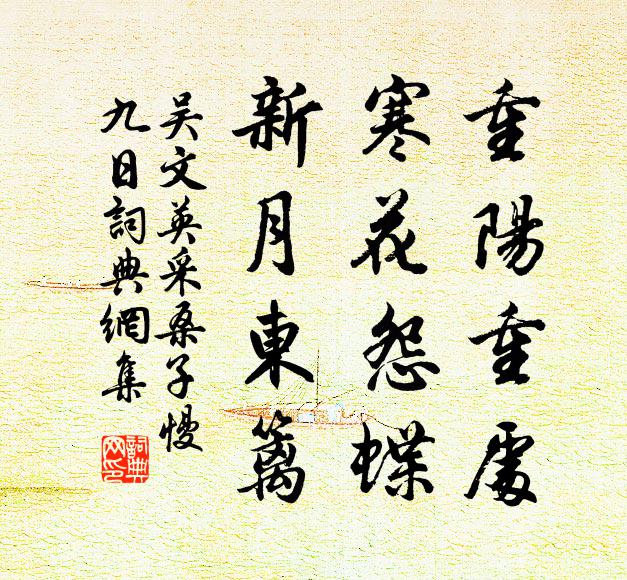 重陽重處
寒花怨蝶
新月東籬
吴文英采桑子慢
九日詞典網集
詞典网印